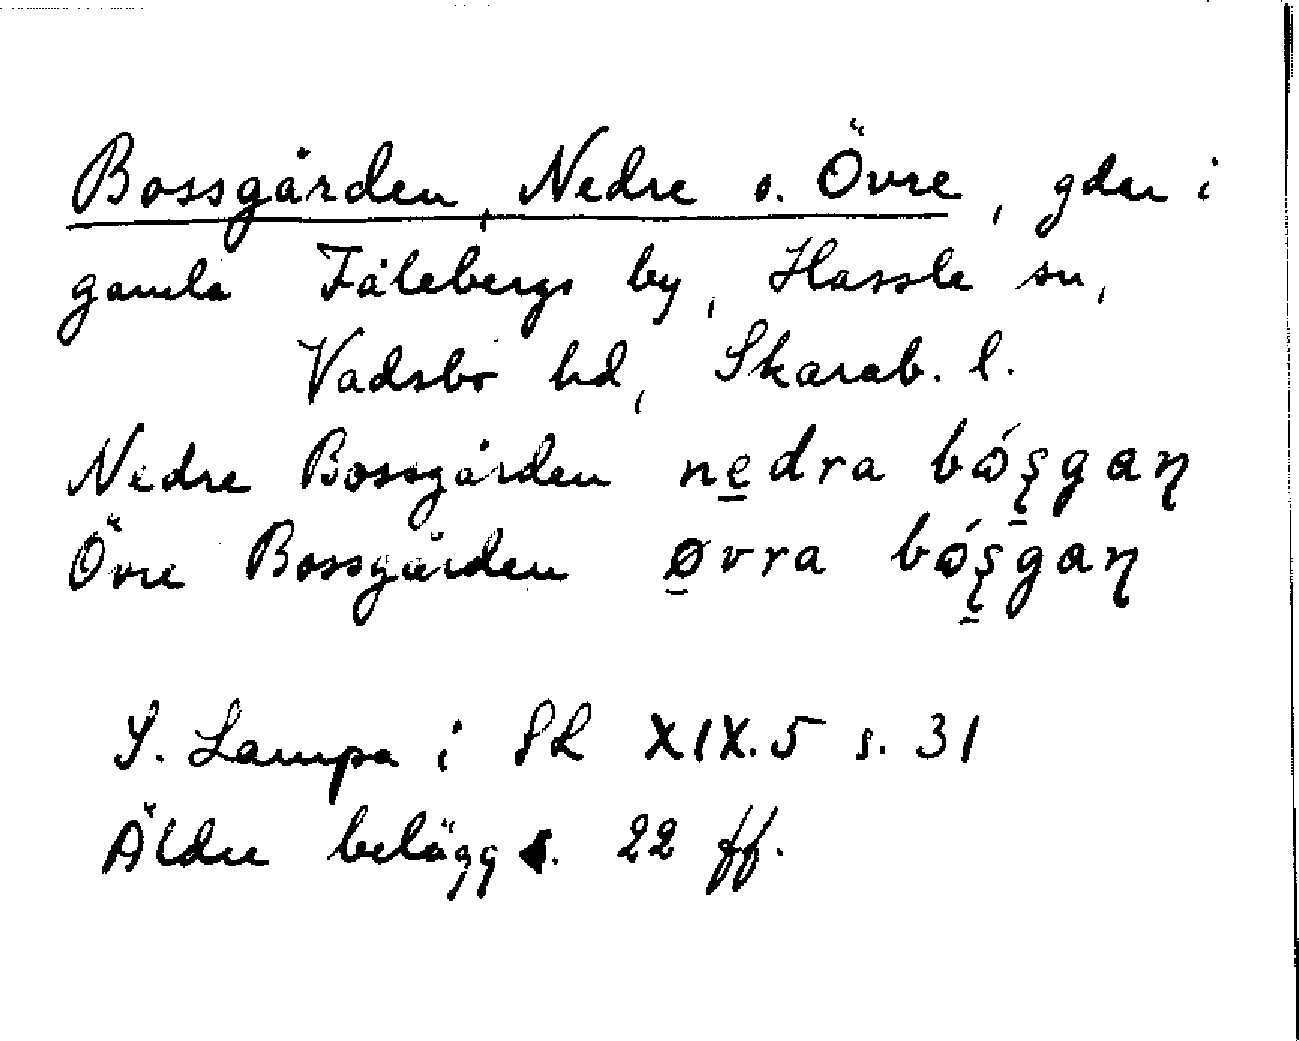 Bossgården, Nedre o. Övre, gdar i
gamla Fålebergs by, Hassle sn,
Vadsbo hd, Skarab. l.
Nedre Bossgården ne̲dra bǿş̲gaŋ
Övre Bossgården ø̲vra bǿş̲gaŋ
S. Lampa i SL XIX.5 s. 31
Äldre belägg s. 22 ff.